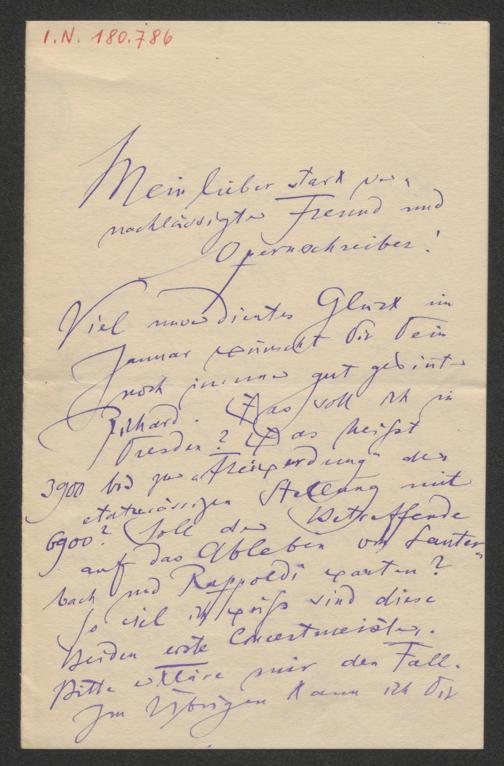 I.N. 180.786
Mein lieber stark ver-
nachlässigter Freund und
Opernschreiber!
Viel unverdientes Glück im
Januar wünscht Dir Dein
noch immer gut gesinnter
Richard. Was soll ich in
Dresden? Was heißt
3900 bis zur „Freiwerdung" der
etatmässigen Stellung mit
6900? Soll der Betreffende
auf das Ableben von Lauter-
bach und Rappoldi warten?
So viel ich weiß sind diese
beiden erste Concertmeister.
Bitte erkläre mir den Fall.
Im Übrigen kann ich Dir